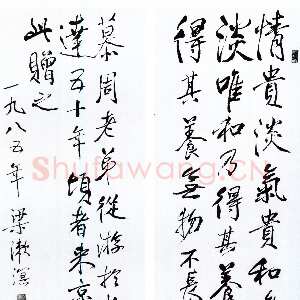 情貴淡氣貴和
淡唯和乃得其養
得其養無物不長
慕周老弟從游於
達五十年頃者来京
此贈之
一九八五年 梁漱溟
Shufawang.CN